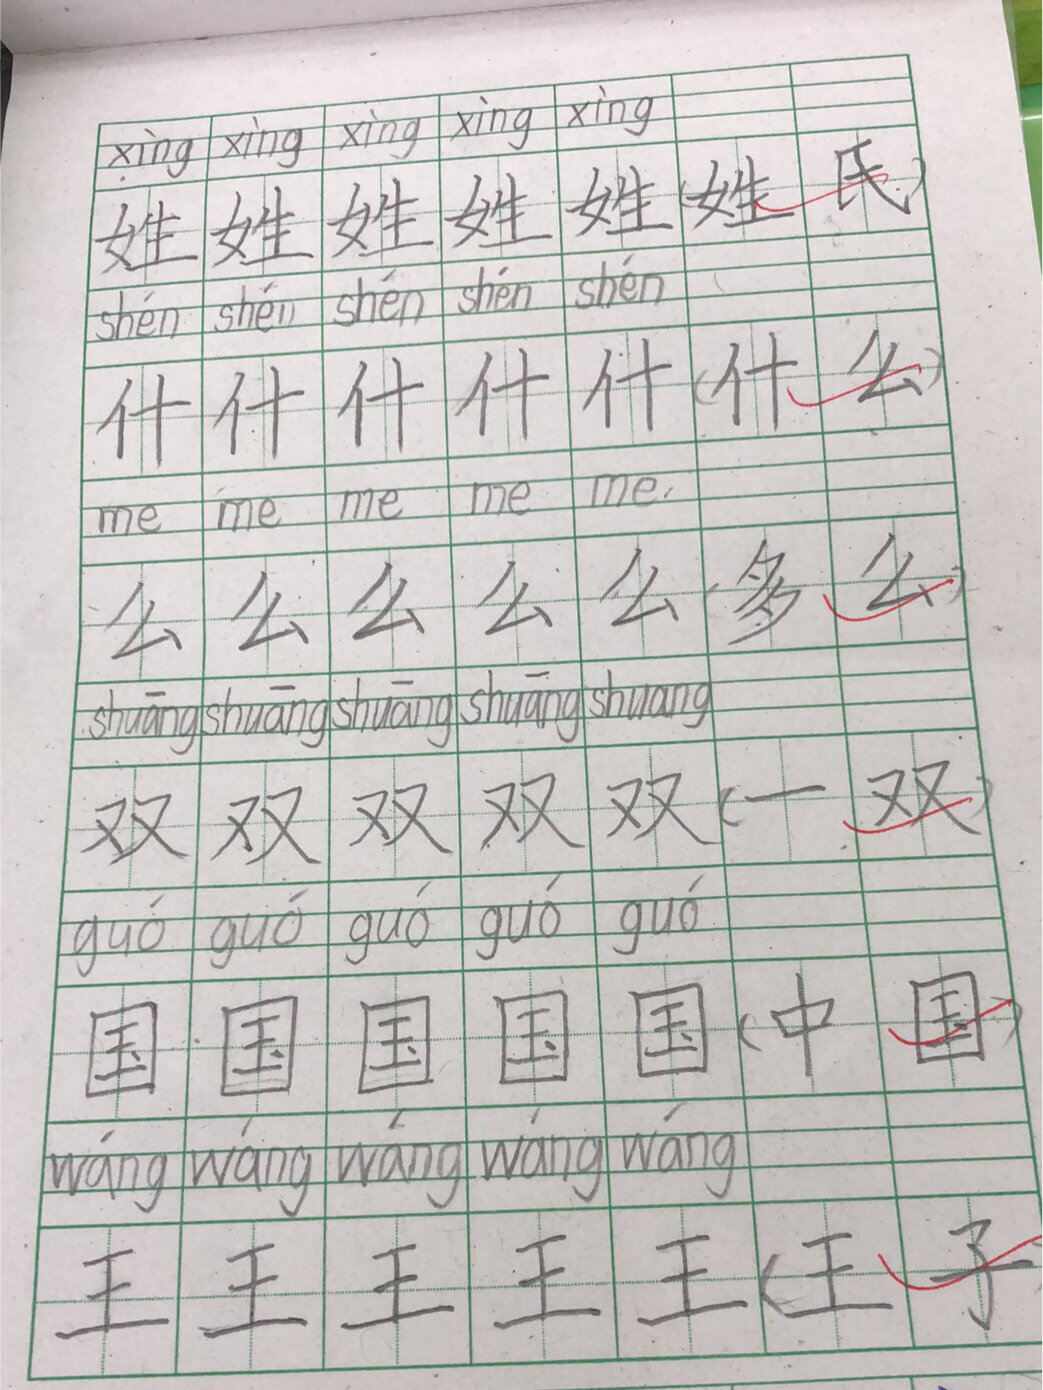 xìng xìng xìng xìng xìng
姓 姓 姓 姓 姓 (姓 氏)
shén shén shén shén shén
什 什 什 什 什 (什 么)
me me me me me
么 么 么 么 么 (多 么)
shuāng shuāng shuāng shuāng shuang
双 双 双 双 双 (一 双)
guó guó guó guó guó
国 国 国 国 国 (中 国)
wáng wáng wáng wáng wáng
王 王 王 王 王 (王 子